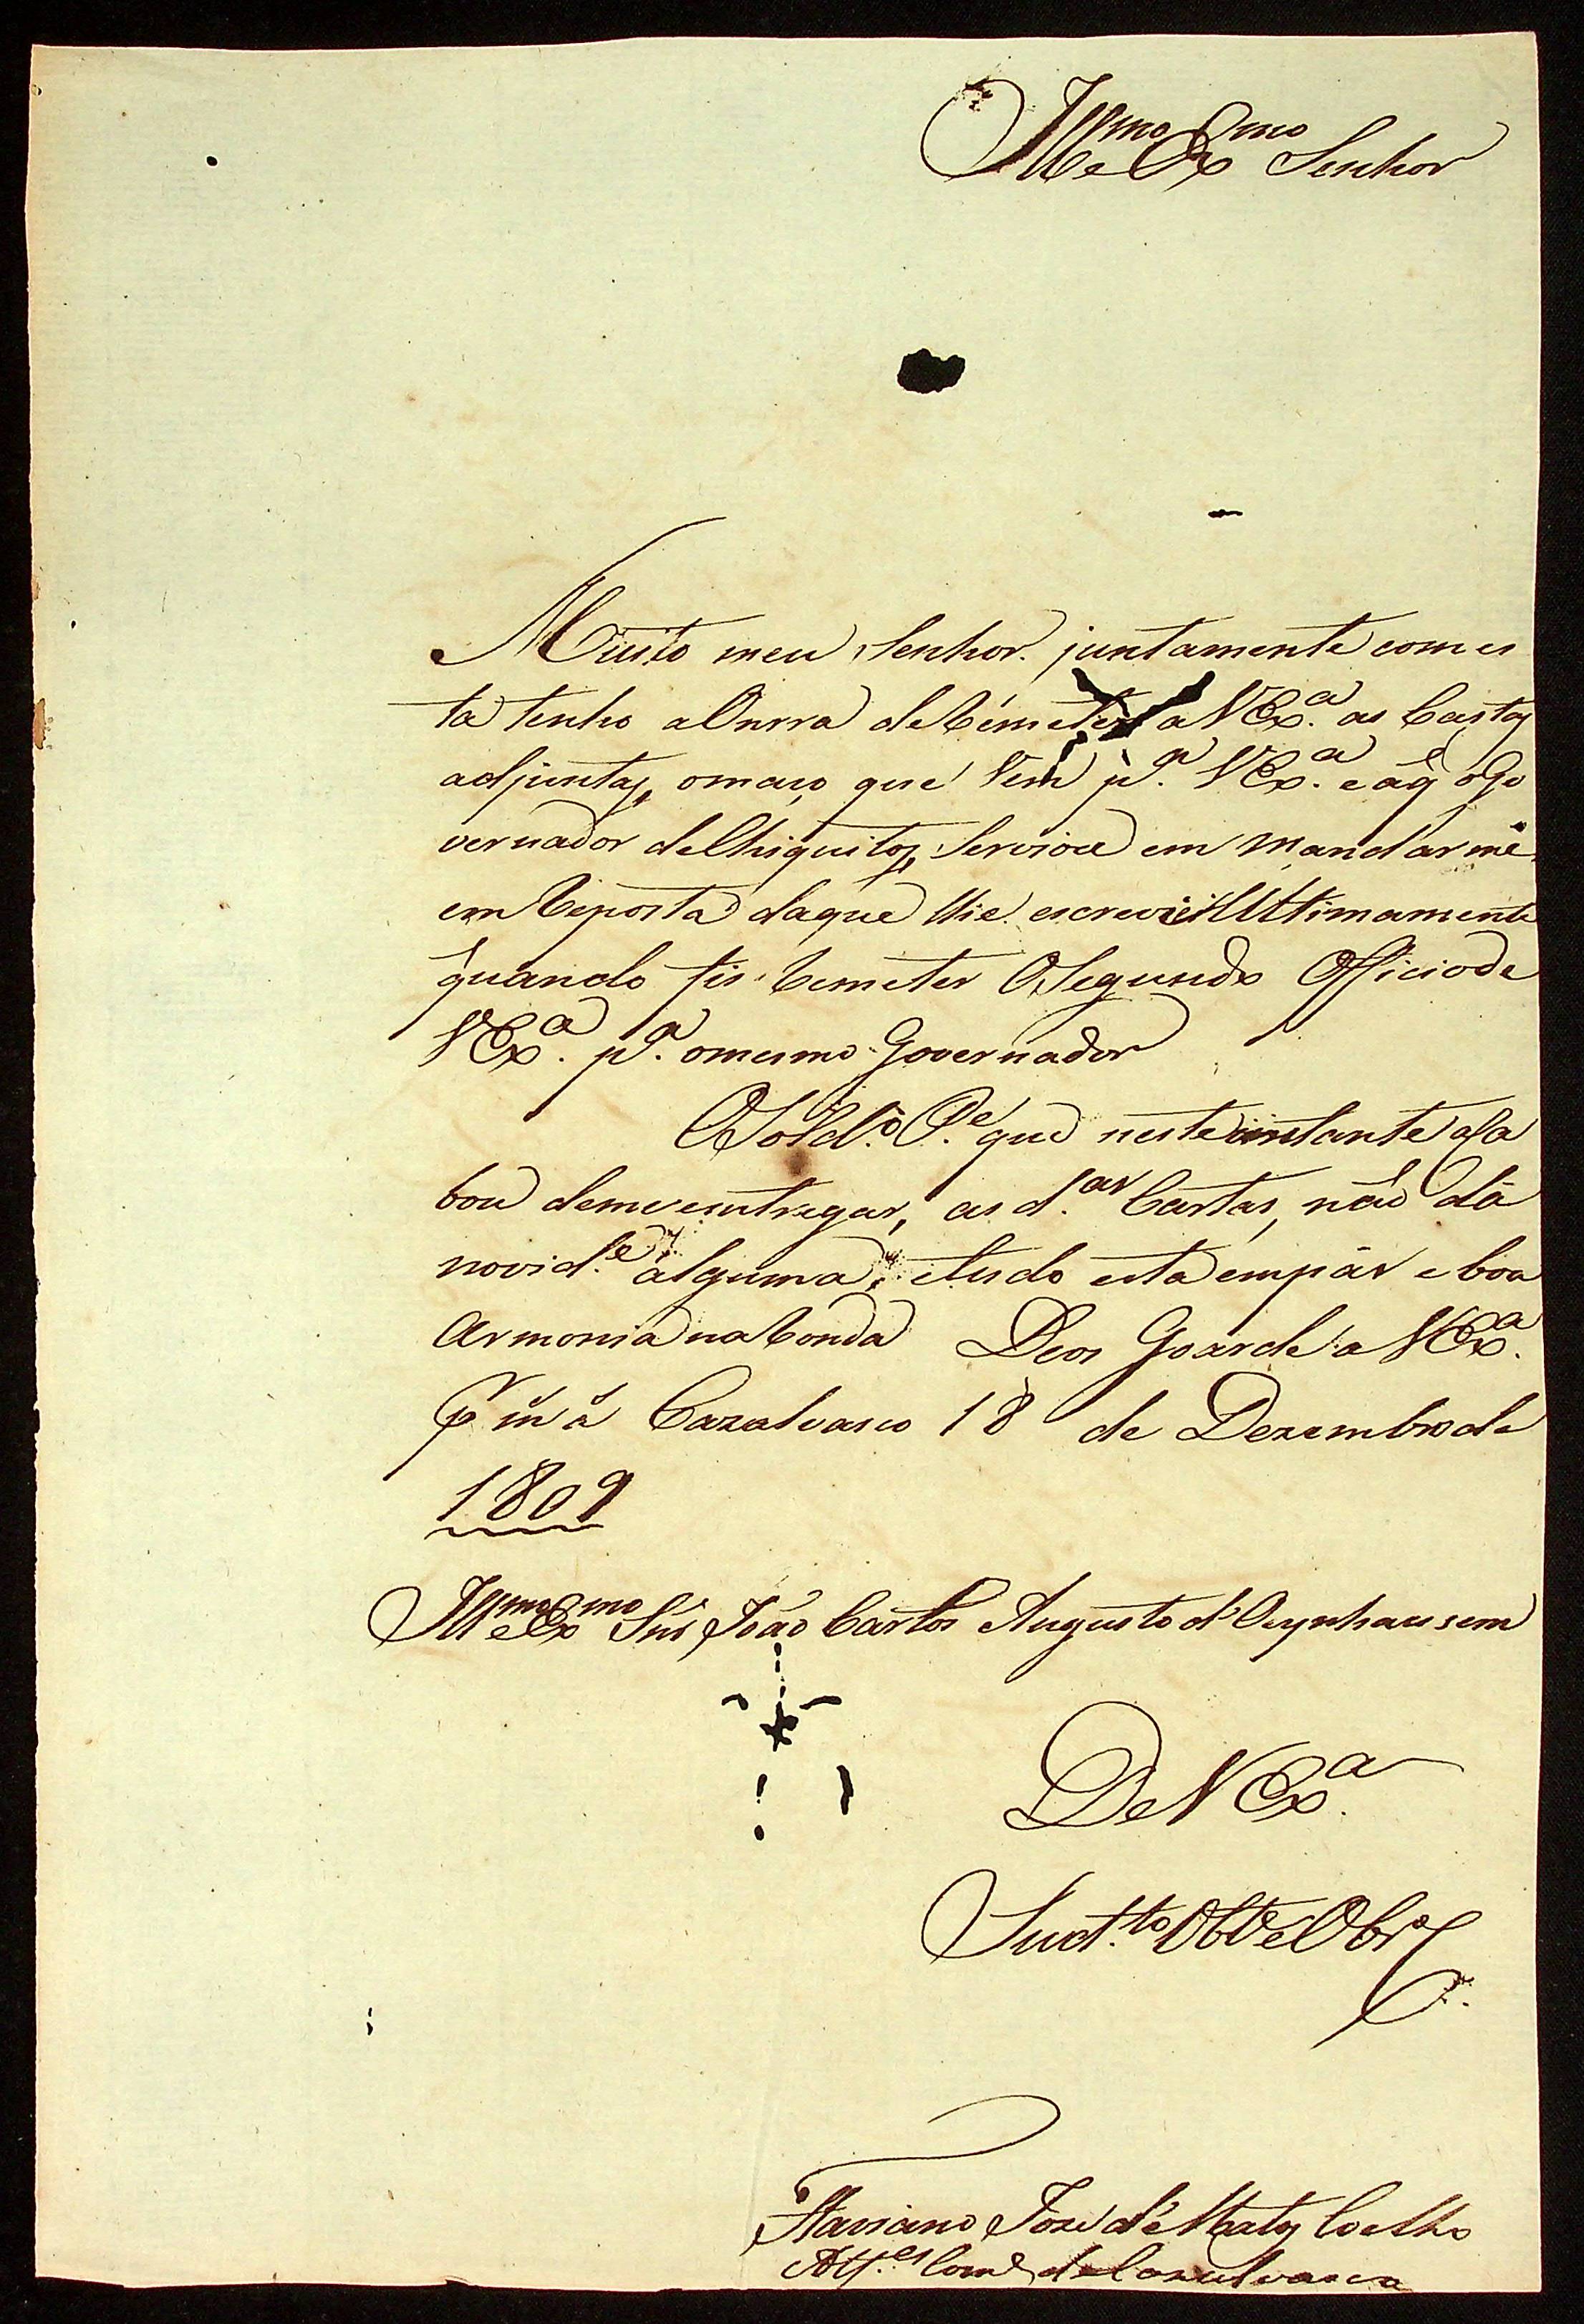 Illmo e Exmo Senhor
Muito meu Senhor. juntamente com es
ta tenho a Onrra de Remeter a VExa. as Cartas
adjuntas, o maço que vem pa. VExa. e a q̃ o Go
vernador de Chiquitos, Serviose em mandarme
em Reposta da que lhe escrevi Ultimamente
quando fis Remeter O Segundo Officio de
VExa. pa. o mesmo Governador
O Sold.o P.e que neste instante aca
bou de me entregar, as d.as Cartas, não dá
novid.e alguma, e tudo esta em pás e boa
Armonia na Ronda Deos Goarde a VExa.
pr m a Cazalvasco 18 de Dezembro de
1809
Illmo e Exmo Snr João Carlos Augusto d'Oeynhausem
De VExa.
Sud.to Obte e Obr
Flaviano Joze de Matos Coelho
Alf.es Come de Cazalvasco